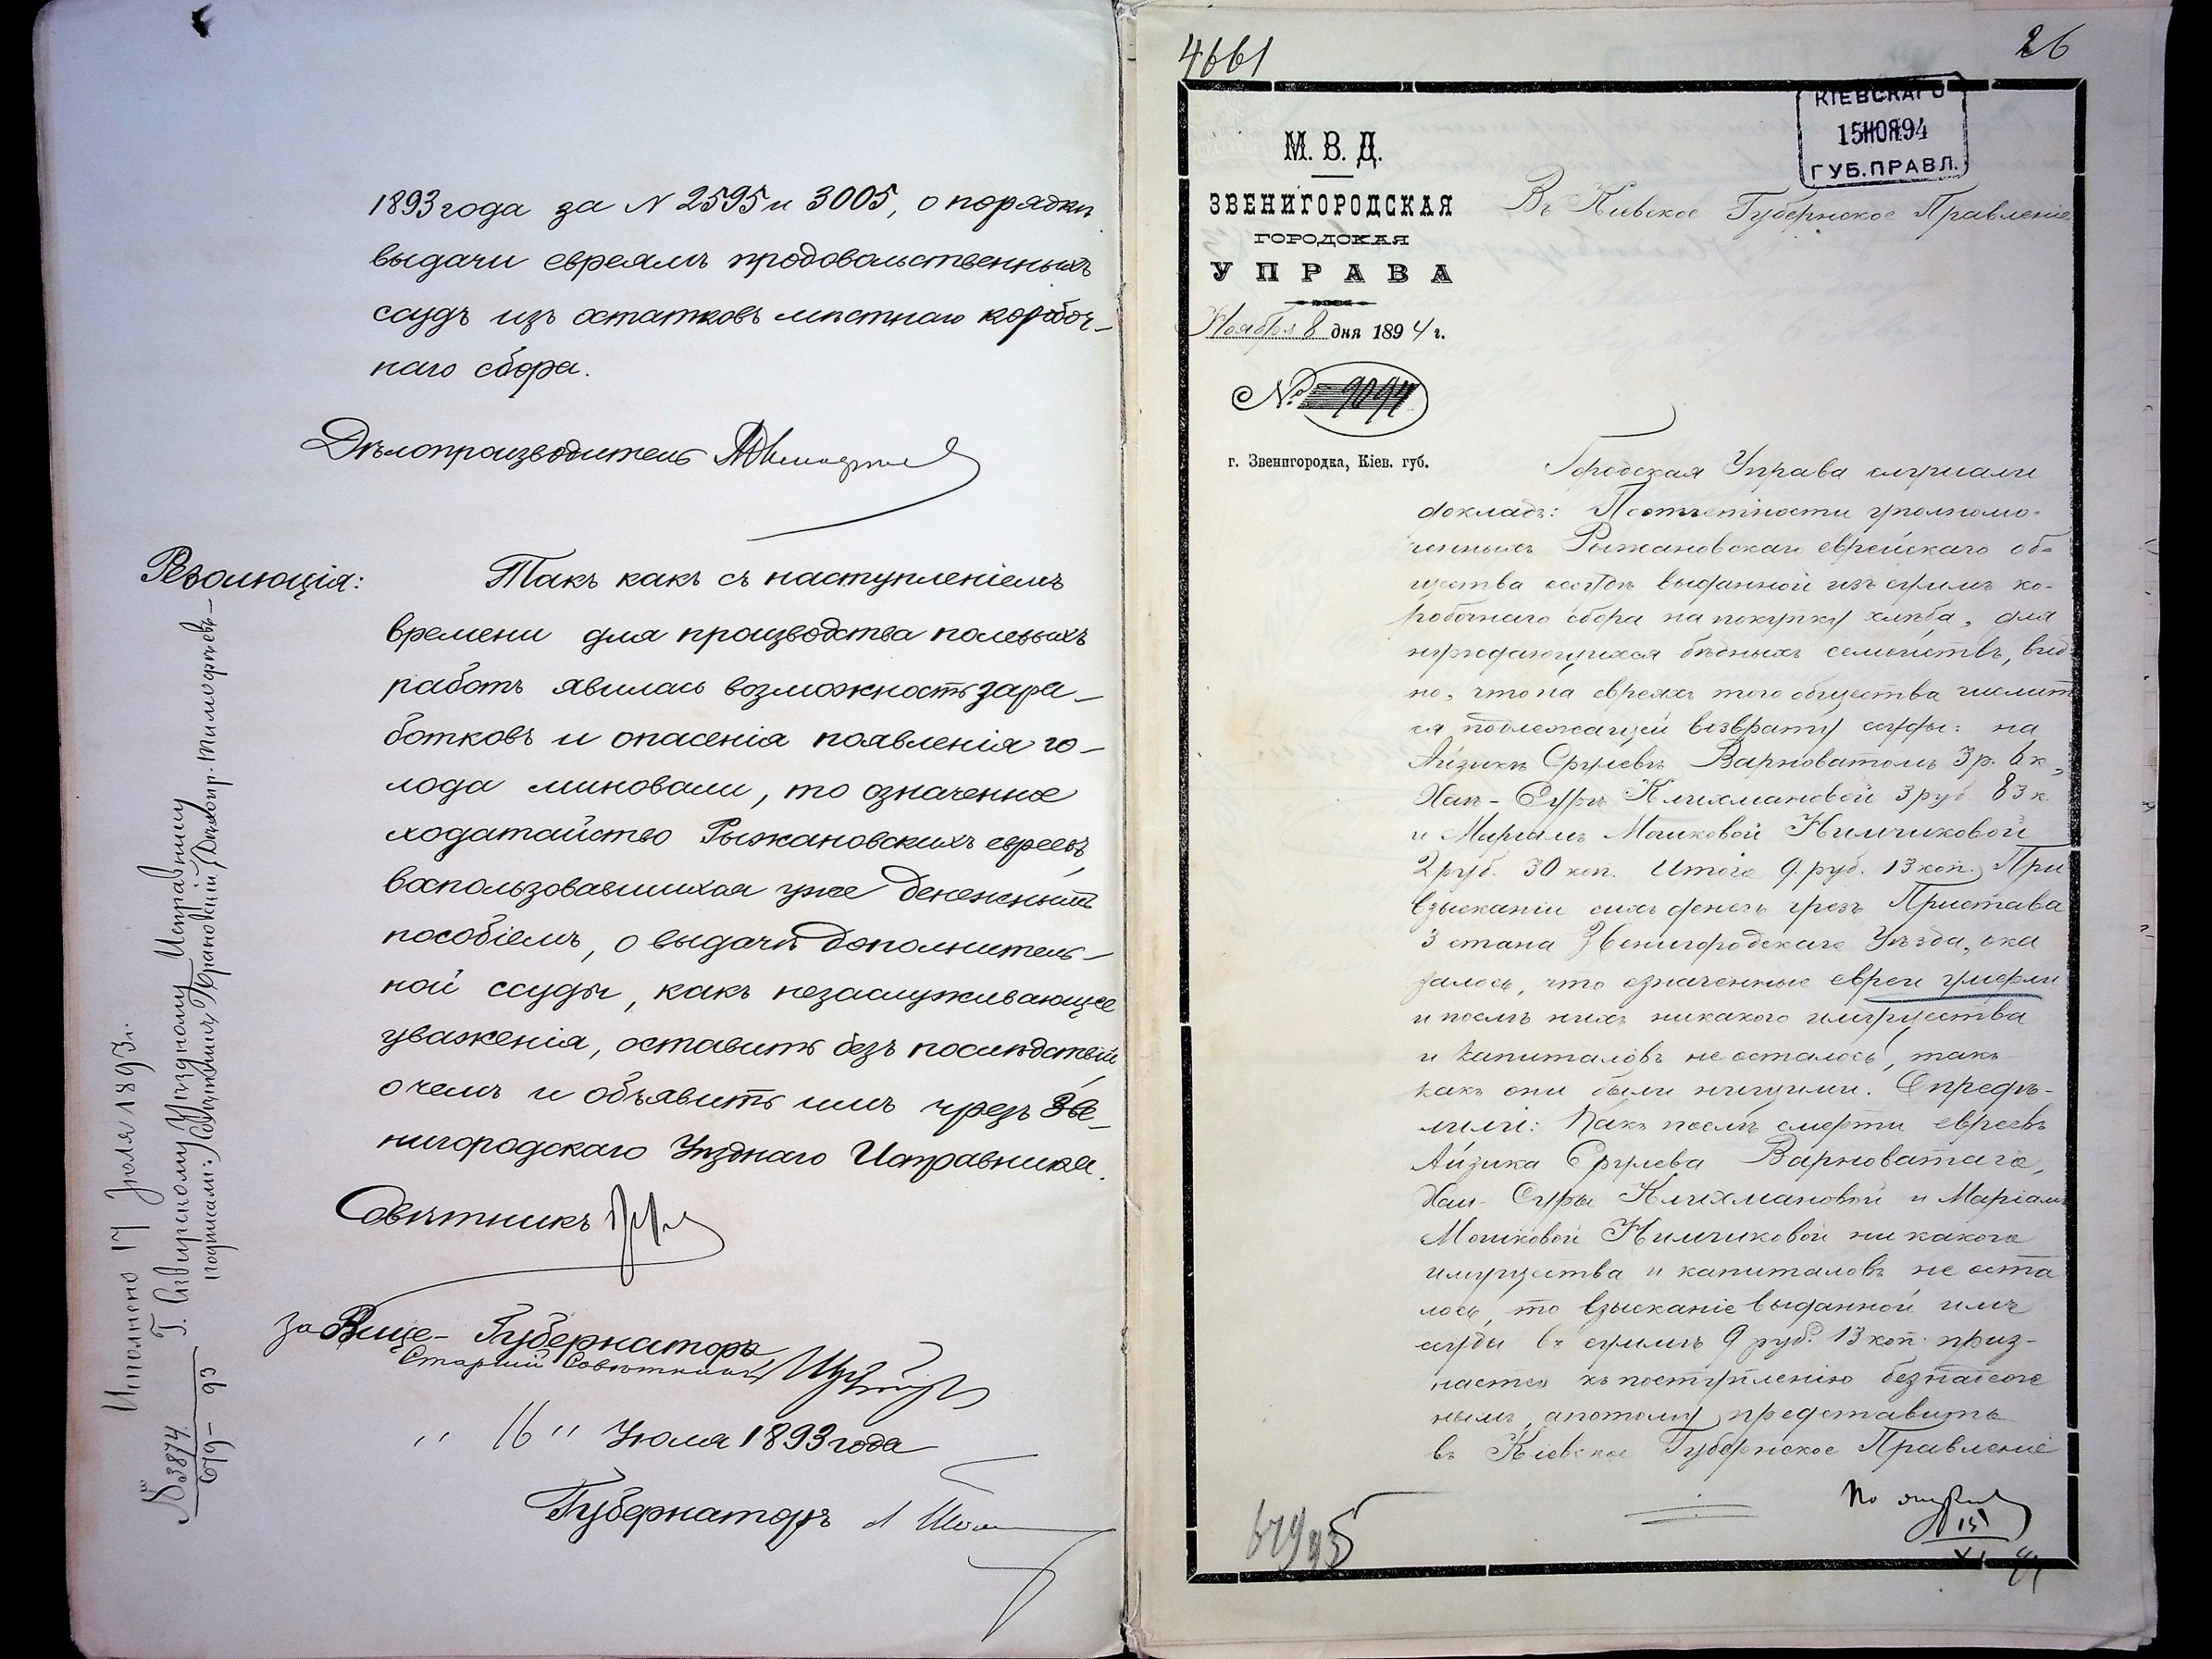 1893 года за N 2595 и 3005, о порядкѣ
выдачи евреямъ продовольственныхъ
ссудъ изъ остатковъ мѣстнаго коробоч-
наго сбора.
Дѣлопроизводитель
Резолюція:
Такъ какъ съ наступленіемъ
времени для производства полевыхъ
работъ явилась возможность зара-
ботковъ и опасенія появленія го-
лода миновали, то означенное
ходатайство Рыжановскихъ евреевъ,
воспользовавшихся уже денежнымъ
пособіемъ, о выдачѣ дополнитель-
ной ссуды, какъ незаслуживающее
уваженія, оставить безъ послѣдствій
о чемъ и объявить имъ чрезъ Зве-
нигородскаго Уѣзднаго Исправника.
Совѣтникъ
за Вице-Губернатора
Старшій Совѣтникъ
" 16 " Іюля 1893 года
Губернаторъ
Исполнено 17 Іюля 1893 г.
№ 3874
679-93
Уѣздному Исправнику
подписали: Совѣтникъ
4661
26
КІЕВСКАГО
15 НОЯ 94
ГУБ. ПРАВЛ.
М. В. Д.
ЗВЕНИГОРОДСКАЯ
ГОРОДСКАЯ
УПРАВА
Ноября 8 дня 1894 г.
№ 9094
г. Звенигородка, Кіев. губ.
Въ Кіевское Губернское Правленіе
Городская Управа слушали
докладъ: По отчетности уполномо-
ченныхъ Рыжановскаго еврейскаго об-
щества ссудѣ выданной изъ суммъ ко-
робочнаго сбора на покупку хлѣба, для
нуждающихся бѣдныхъ семействъ, вид-
но, что на евреяхъ того общества числит
ся подлежащей возврату ссуды: на
Айзикѣ Срулевѣ Варноватомъ 3 р. 6 к.,
Хаи-Сурѣ Клихмановой 3 руб 83 к.
и Маріамъ Мошковой Нимчиковой
2 руб. 30 коп. Итого 9 руб. 13 коп. При
взысканіи сихъ денегъ чрезъ Пристава
3 стана Звенигородскаго Уѣзда, ока
залось, что означенные евреи умерли
и послѣ нихъ никакого имущества
и капиталовъ не осталось, такъ
какъ они были нищими. Опредѣ-
лили: Какъ послѣ смерти евреевъ
Айзика Срулева Варноватаго,
Хаи-Суры Клихмановой и Маріамъ
Мошковой Нимчиковой никакого
имущества и капиталовъ не оста
лось, то взысканіе выданной имъ
ссуды въ суммѣ 9 руб. 13 коп. приз-
нается къ поступленію безнадеж
нымъ, а потому представить
въ Кіевское Губернское Правленіе
679 93